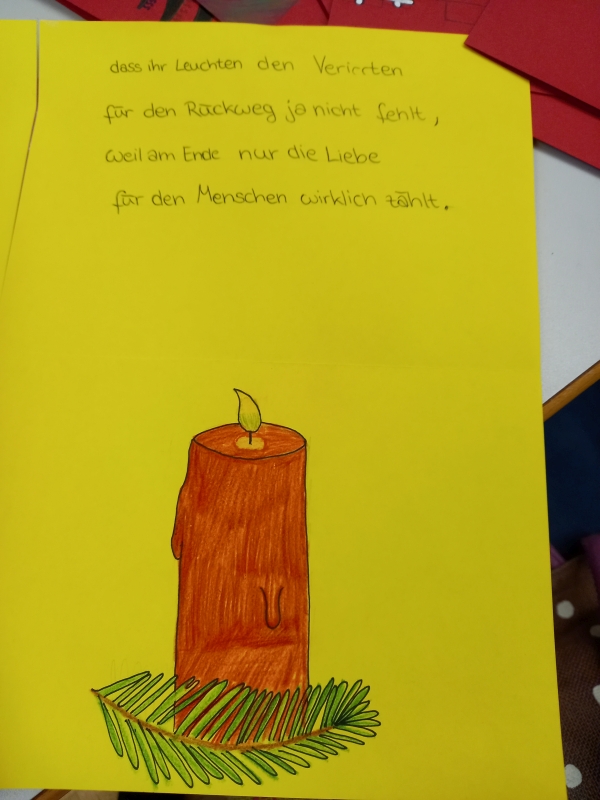 dass ihr Leuchten den Verirrten
für den Rückweg ja nicht fehlt,
weil am Ende nur die Liebe
für den Menschen wirklich zählt.